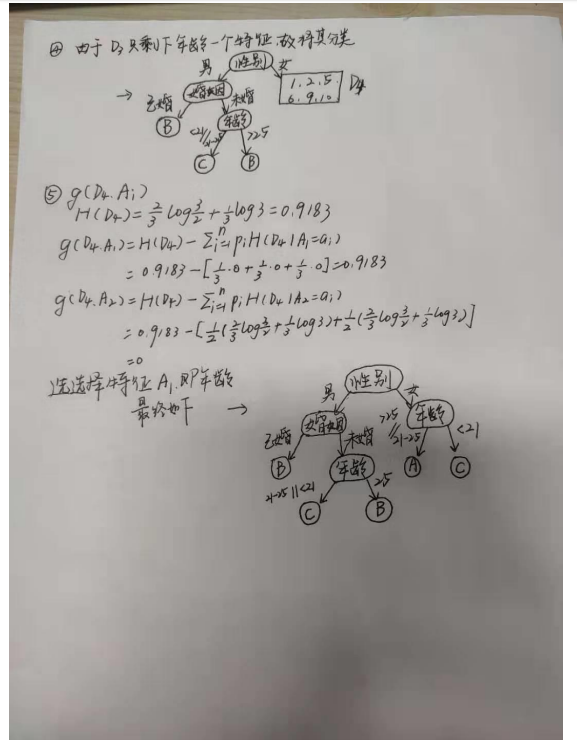 ④ 由于D3只剩下年龄一个特征,故将其分类
性别
男 女
→ 婚姻 1.2.5. D4
6.9.10
已婚 未婚
B 年龄
<21//21-25 >25
C B
⑤ g(D4.Ai)
H(D4)=2/3 log3/2+1/3 log3=0.9183
g(D4.A1)=H(D4)-Σⁿi=1 piH(D4|A1=ai)
=0.9183-[1/3·0+1/3·0+1/3·0]=0.9183
g(D4.A2)=H(D4)-Σⁿi=1 piH(D4|A2=ai)
=0.9183-[1/2(2/3log3/2+1/3log3)+1/2(2/3log3/2+1/3log3)]
=0
选择特征A1.即年龄
最终如下 →
性别
男 女
婚姻 年龄
已婚 未婚 >25//21-25 <21
B 年龄 A C
21-25||<21 >25
C B